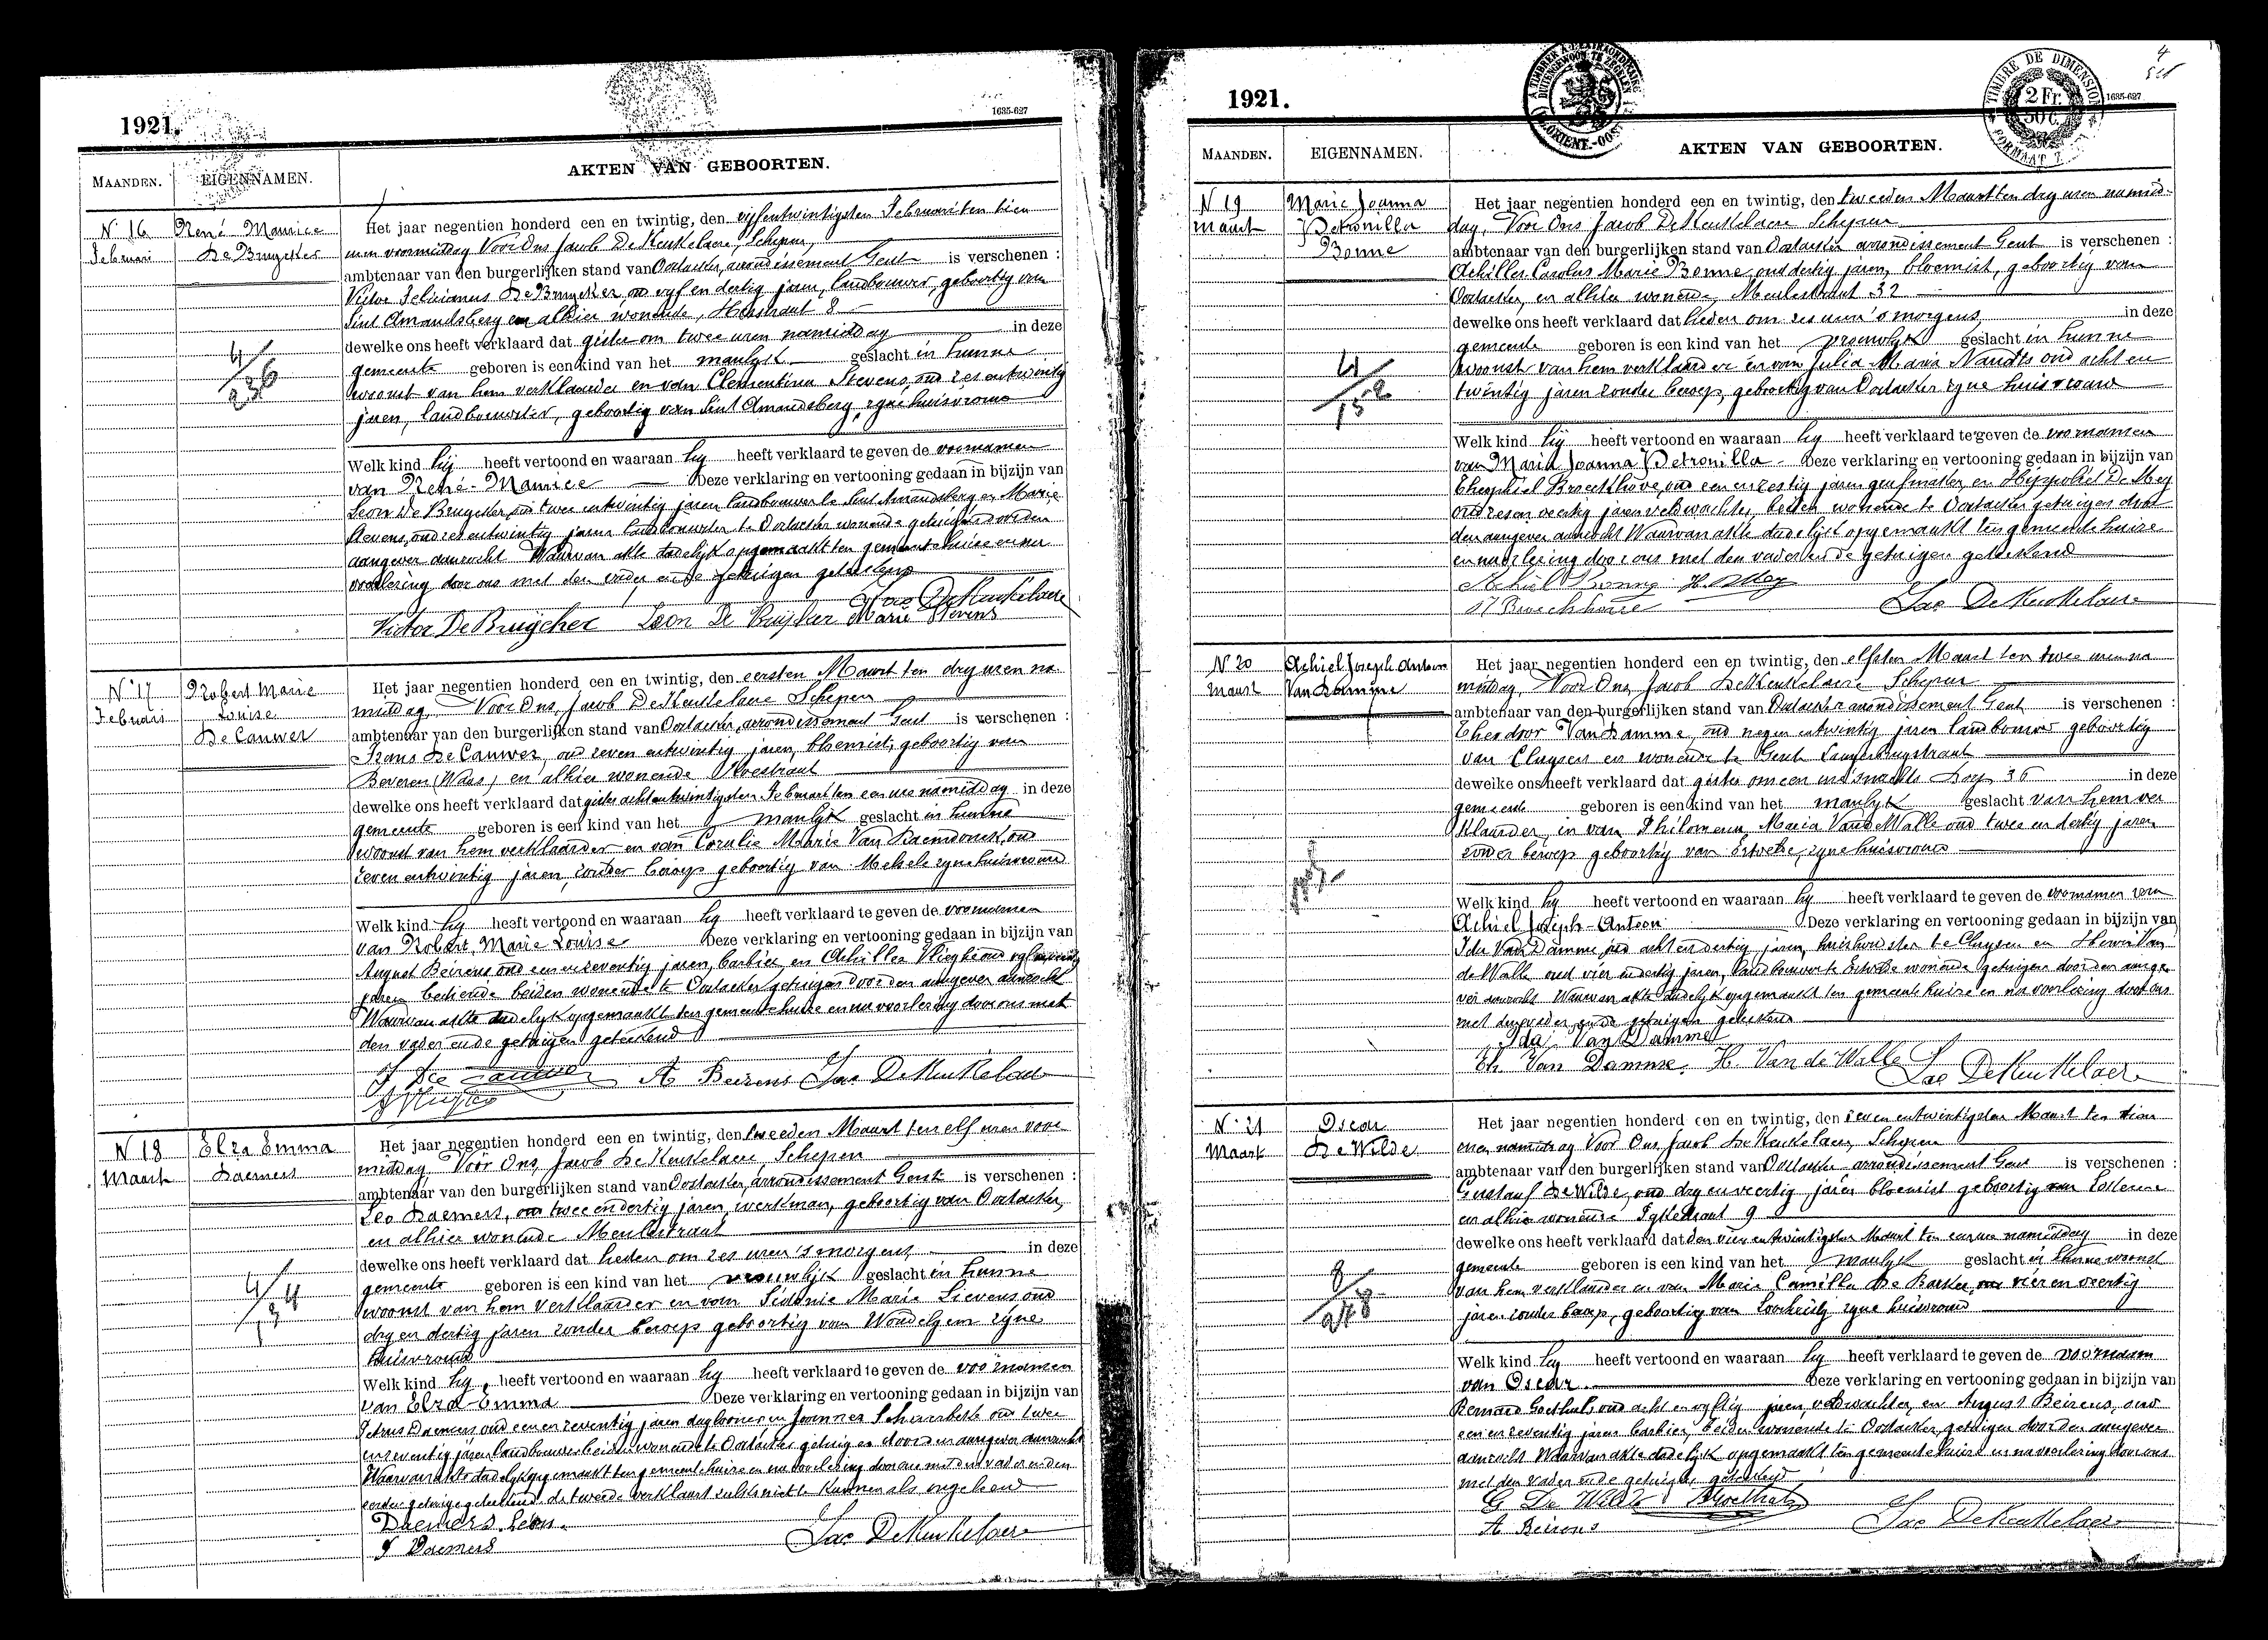 1921.
1635-627
MAANDEN.
EIGENNAMEN.
AKTEN VAN GEBOORTEN.
N. 16
Februari
René Maurice
De Bruycker
4/236
Het jaar negentien honderd een en twintig, den vijfentwintigsten Februari ten tien
uren voormiddag Voor Ons Jacob De Keukelaere, Schepen,
ambtenaar van den burgerlijken stand van Oostacker, arrondissement Gent is verschenen :
Victor Felicianus De Bruycker, oud vyf en dertig jaren, landbouwer, geboortig van
Sint Amandsberg en alhier wonende, Herstraat 8
dewelke ons heeft verklaard dat gister om twee uren namiddag in deze
gemeente geboren is een kind van het manlyk geslacht in hunne
woonst van hem verklaarder en van Clementina Stevens, oud zes entwintig
jaren, landbouwster, geboortig van Sint Amandsberg, zyne huisvrouw
Welk kind hij heeft vertoond en waaraan hy heeft verklaard te geven de voornamen
van René-Maurice Deze verklaring en vertooning gedaan in bijzijn van
Leon De Bruycker, oud twee entwintig jaren landbouwer te Sint Amandsberg en Marie
Stevens, oud zes entwintig jaren landbouwster te Oostacker wonende getuigen door den
aangever aanzocht Waarvan akte dadelijk opgemaakt ten gemeentehuize en na
voorlezing door ons met den vader en de getuigen geteekend
Jac DeKeukelaere
Victor De Bruycker Leon De Bruycker Marie Stevens
N. 17
Februari
Robert Marie
Louise
De Cauwer
Het jaar negentien honderd een en twintig, den eersten Maart ten dry uren na
middag, Voor Ons, Jacob De Keukelaere Schepen
ambtenaar van den burgerlijken stand van Oostacker, arrondissement Gent is verschenen :
Frans De Cauwer, oud zeven entwintig jaren, bloemist, geboortig van
Beveren (Waas) en alhier wonende
dewelke ons heeft verklaard dat gister achtentwintigsten Februari ten een ure namiddag in deze
gemeente geboren is een kind van het manlyk geslacht in hunne
woonst van hem verklaarder en van Coralie Marie Van Daemdonck, oud
zeven entwintig jaren, zonder beroep geboortig van Melsele zyne huisvrouw
Welk kind hy heeft vertoond en waaraan hy heeft verklaard te geven de voornamen
van Robert, Marie Louise Deze verklaring en vertooning gedaan in bijzijn van
August Beirens oud een en zeventig jaren, barbier, en Achilles Vlieghe oud
jaren bediende beiden wonende te Oostacker getuigen door den aangever aanzocht
Waarvan akte dadelyk opgemaakt ten gemeentehuize en na voorlezing door ons met
den vader en de getuigen geteekend
F De Cauwer A Beirens Jac DeKeukelaere
A Vlieghe
N. 18
Maart
Elza Emma
Daemers
4/134
Het jaar negentien honderd een en twintig, den tweeden Maart ten elf uren voor
middag Voor Ons, Jacob De Keukelaere, Schepen
ambtenaar van den burgerlijken stand van Oostacker, arrondissement Gent is verschenen :
Leo Daemers, oud twee en dertig jaren, werkman, geboortig van Oostacker,
en alhier wonende Meulestraat
dewelke ons heeft verklaard dat heden om zes uren 's morgens in deze
gemeente geboren is een kind van het vrouwlijk geslacht in hunne
woonst van hem verklaarder en van Sidonie Marie Lievens oud
dry en dertig jaren zonder beroep geboortig van Wondelgem zyne
huisvrouw
Welk kind hy heeft vertoond en waaraan hy heeft verklaard te geven de voornamen
van Elza-Emma Deze verklaring en vertooning gedaan in bijzijn van
Petrus Daemers oud een en zeventig jaren daglooner en Joannes oud twee
en zeventig jaren landbouwer beiden wonende te Oostacker getuigen door den aangever aanzocht
Waarvan akte dadelyk opgemaakt ten gemeentehuize en na voorlezing door ons met den vader en den
eersten getuige geteekend de tweede verklaart zulks niet te kunnen als ongeleerd
Daemers Leon.
P Daemers
Jac DeKeukelaere
1921.
A TIMBRER A L'EXTRAORDINAIRE
BUITENGEWOON TE ZEGELEN
TIMBRE DE DIMENSION
2 Fr.
50 C.
FORMAAT
1635-627
4
MAANDEN.
EIGENNAMEN.
AKTEN VAN GEBOORTEN.
N 19
Maart
Marie Joanna
Petronilla
Bonne
4/152
Het jaar negentien honderd een en twintig, den tweeden Maart ten dry uren namid-
dag, Voor Ons Jacob De Keukelaere Schepen
ambtenaar van den burgerlijken stand van Oostacker arrondissement Gent is verschenen :
Achilles Carolus Marie Bonne, oud dertig jaren, bloemist, geboortig van
Oostacker, en alhier wonende, Meulestraat 32
dewelke ons heeft verklaard dat heden om zes uren 's morgens in deze
gemeente geboren is een kind van het vrouwlyk geslacht in hunne
woonst van hem verklaarder en van Julia Maria Naudts oud acht en
twintig jaren zonder beroep, geboortig van Oostacker zyne huisvrouw
Welk kind hij heeft vertoond en waaraan hy heeft verklaard te geven de voornamen
van Maria Joanna Petronilla Deze verklaring en vertooning gedaan in bijzijn van
Theophiel Broeckhove, oud een en zestig jaren en Hippoliet De Mey
oud zes en veertig jaren veldwachter, beiden wonende te Oostacker getuigen door
den aangever aanzocht Waarvan akte dadelijk opgemaakt ten gemeentehuize
en na voorlezing door ons met den vader en de getuigen geteekend
Achiel Bonne H. DMey
Th Broeckhove
Jac DeKeukelaere
N. 20
Maart
Achiel Joseph Antoon
Van Damme
Het jaar negentien honderd een en twintig, den elfsten Maart ten twee uren na
middag, Voor Ons, Jacob De Keukelaere Schepen
ambtenaar van den burgerlijken stand van Oostacker arrondissement Gent is verschenen :
Theodoor Van Damme, oud negen entwintig jaren landbouwer geboortig
van Cluysen en wonende te Gent Langerbrugstraat
dewelke ons heeft verklaard dat gister om een ure 's nachts Dorp 36 in deze
gemeente geboren is een kind van het manlyk geslacht van hem ver
klaarder, en van Philomena Maria Van de Walle oud twee en dertig jaren
zonder beroep geboortig van Ertvelde, zyne huisvrouw
Welk kind hy heeft vertoond en waaraan hy heeft verklaard te geven de voornamen van
Achiel Joseph-Antoon Deze verklaring en vertooning gedaan in bijzijn van
Ida Van Damme, oud acht en dertig jaren, huishoudster te Cluysen en Henri Van
de Walle oud vier en dertig jaren, landbouwer te Ertvelde wonende getuigen door den aange
ver aanzocht Waarvan akte dadelyk opgemaakt ten gemeentehuize en na voorlezing door ons
met den vader en de getuigen geteekend
Ida Van Damme
Th Van Damme. H. Van de Walle
Jac DeKeukelaere
N. 21
Maart
Oscar
De Wilde
8/248
Het jaar negentien honderd een en twintig, den zeven entwintigsten Maart ten tien
uren namiddag Voor Ons, Jacob De Keukelaere, Schepen
ambtenaar van den burgerlijken stand van Oostacker arrondissement Gent is verschenen :
Gustaaf De Wilde, oud dry en veertig jaren bloemist geboortig van
en alhier wonende 9
dewelke ons heeft verklaard dat den vier entwintigsten Maart ten een ure namiddag in deze
gemeente geboren is een kind van het manlyk geslacht in hunne woonst
van hem verklaarder en van Marie Camilla De Backer, oud vier en veertig
jaren zonder beroep, geboortig van Loochristy zyne huisvrouw
Welk kind hy heeft vertoond en waaraan hy heeft verklaard te geven de voornaam
van Oscar. Deze verklaring en vertooning gedaan in bijzijn van
Bernard Goethals oud acht en vyftig jaren, veldwachter, en August Beirens, oud
een en zeventig jaren barbier, beiden wonende te Oostacker, getuigen door den aangever
aanzocht Waarvan akte dadelijk opgemaakt ten gemeentehuize en na voorlezing door ons
met den vader en de getuigen geteekend
G De Wilde BGoethals
A Beirens
Jac DeKeukelaere